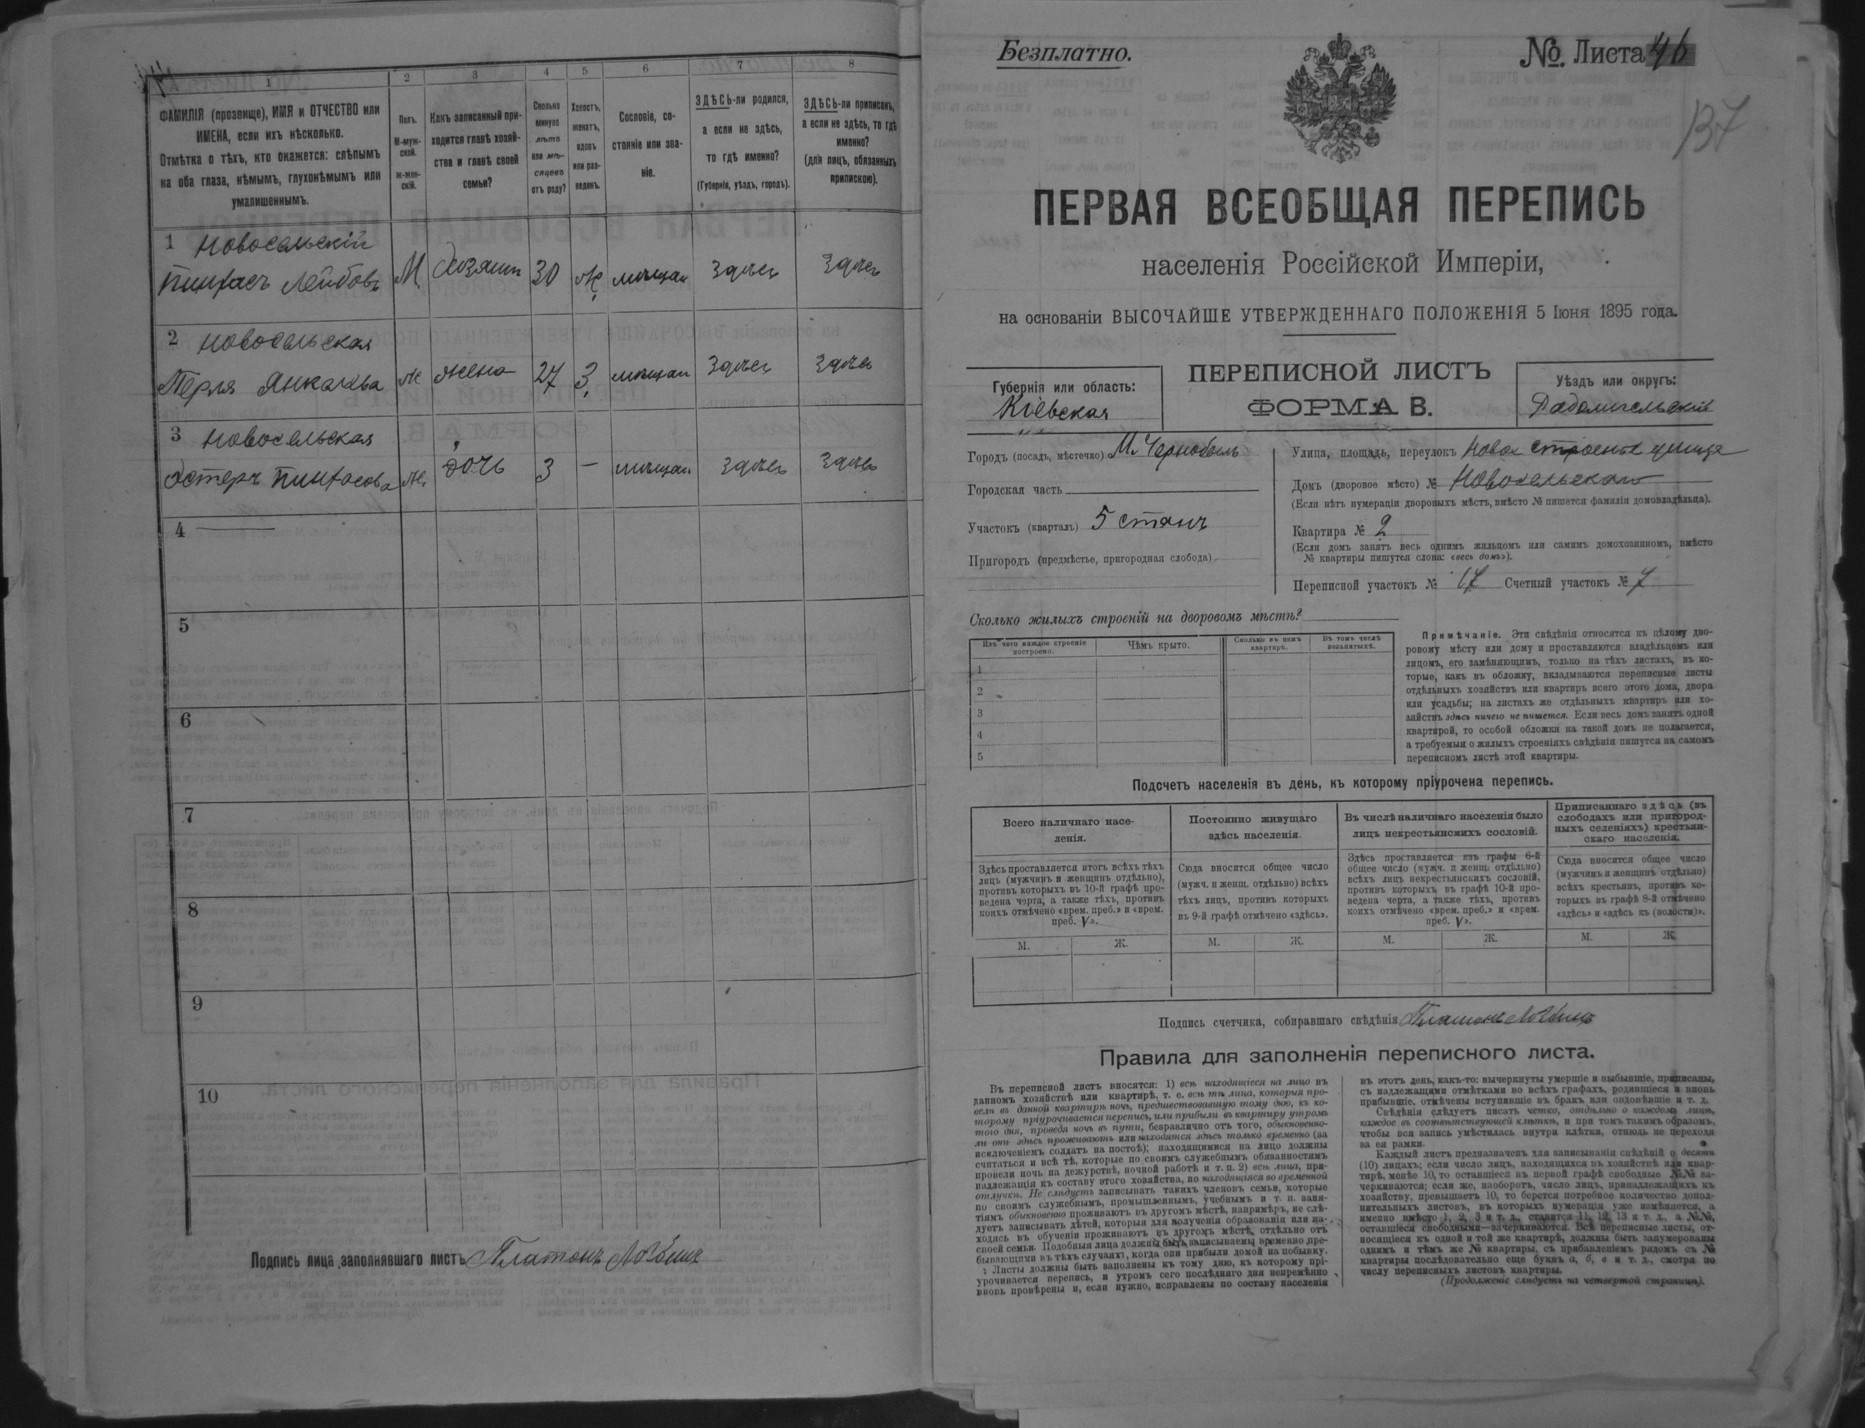 1 2 3 4 5 6 7 8
ФАМИЛІЯ (прозвище), ИМЯ и ОТЧЕСТВО или
ИМЕНА, если ихъ нѣсколько.
Отмѣтка о тѣхъ, кто окажется: слѣпымъ
на оба глаза, нѣмымъ, глухонѣмымъ или
умалишеннымъ.
Полъ.
М-муж-
ской.
Ж-жен-
скій.
Какъ записанный при-
ходится главѣ хозяй-
ства и главѣ своей
семьи?
Сколько
минуло
лѣтъ
или мѣ-
сяцевъ
отъ роду?
Холостъ,
женатъ,
вдовъ
или раз-
веденъ.
Сословіе, со-
стояніе или зва-
ніе.
ЗДѢСЬ-ли родился,
а если не здѣсь,
то гдѣ именно?
(Губернія, уѣздъ, городъ).
ЗДѢСЬ-ли приписанъ,
а если не здѣсь, то гдѣ
именно?
(для лицъ, обязанныхъ
припискою).
1 Новосельскій
Пинхасъ Лейбовъ М хозяин 30 ж мѣщан здѣсь здѣсь
2 Новосельская
Перля Янкелева ж жена 27 з мѣщан здѣсь здѣсь
3 Новосельская
Эстеръ Пинхасова ж дочь 3 — мѣщан здѣсь здѣсь
4
5
6
7
8
9
10
Подпись лица заполнявшаго листъ Платонъ
Безплатно.
№ Листа 46
137
ПЕРВАЯ ВСЕОБЩАЯ ПЕРЕПИСЬ
населенія Россійской Имперіи,
на основаніи ВЫСОЧАЙШЕ УТВЕРЖДЕННАГО ПОЛОЖЕНІЯ 5 Іюня 1895 года.
Губернія или область:
Кіевская
ПЕРЕПИСНОЙ ЛИСТЪ
ФОРМА В.
Уѣздъ или округъ:
Радомысльскій
Городъ (посадъ, мѣстечко) М. Чернобыль
Городская часть
Участокъ (кварталъ) 5 станъ
Пригородъ (предмѣстье, пригородная слобода)
Улица, площадь, переулокъ Новое строенье улица
Домъ (дворовое мѣсто) № Новосельскаго
(Если нѣтъ нумераціи дворовыхъ мѣстъ, вмѣсто № пишется фамилія домовладѣльца).
Квартира № 2
(Если домъ занятъ весь однимъ жильцомъ или самимъ домохозяиномъ, вмѣсто
№ квартиры пишутся слова: «весь домъ»).
Переписной участокъ № 17 Счетный участокъ № 7
Сколько жилыхъ строеній на дворовомъ мѣстѣ?
Изъ чего каждое строеніе
построено.
Чѣмъ крыто.
Сколько въ немъ
квартиръ.
Въ томъ числѣ
незанятыхъ.
1
2
3
4
5
Примѣчаніе. Эти свѣдѣнія относятся къ цѣлому дво-
ровому мѣсту или дому и проставляются владѣльцемъ или
лицомъ, его замѣняющимъ, только на тѣхъ листахъ, въ ко-
торые, какъ въ обложку, вкладываются переписные листы
отдѣльныхъ хозяйствъ или квартиръ всего этого дома, двора
или усадьбы; на листахъ же отдѣльныхъ квартиръ или хо-
зяйствъ здѣсь ничего не пишется. Если весь домъ занятъ одной
квартирой, то особой обложки на такой домъ не полагается,
а требуемыя о жилыхъ строеніяхъ свѣдѣнія пишутся на самомъ
переписномъ листѣ этой квартиры.
Подсчетъ населенія въ день, къ которому пріурочена перепись.
Всего наличнаго насе-
ленія.
Здѣсь проставляется итогъ всѣхъ тѣхъ
лицъ (мужчинъ и женщинъ отдѣльно),
противъ которыхъ въ 10-й графѣ про-
ведена черта, а также тѣхъ, противъ
коихъ отмѣчено «врем. преб.» и «врем.
преб. V».
Постоянно живущаго
здѣсь населенія.
Сюда вносится общее число
(мужч. и женщ. отдѣльно) всѣхъ
тѣхъ лицъ, противъ которыхъ
въ 9-й графѣ отмѣчено «здѣсь».
Въ числѣ наличнаго населенія было
лицъ некрестьянскихъ сословій.
Здѣсь проставляется изъ графы 6-й
общее число (мужч. и женщ. отдѣльно)
всѣхъ лицъ некрестьянскихъ сословій,
противъ которыхъ въ графѣ 10-й про-
ведена черта, а также тѣхъ, противъ
коихъ отмѣчено «врем. преб.» и «врем.
преб. V».
Приписаннаго здѣсь (въ
слободахъ или пригород-
ныхъ селеніяхъ) крестьян-
скаго населенія.
Сюда вносится общее число
(мужчинъ и женщинъ отдѣльно)
всѣхъ крестьянъ, противъ ко-
торыхъ въ графѣ 8-й отмѣчено
«здѣсь» и «здѣсь къ (волости)».
М. Ж. М. Ж. М. Ж. М. Ж.
Подпись счетчика, собиравшаго свѣдѣнія Платонъ
Правила для заполненія переписного листа.
Въ переписной листъ вносятся: 1) всѣ находящіеся на лицо въ
данномъ хозяйствѣ или квартирѣ, т. е. всѣ тѣ лица, которыя про-
вели въ данной квартирѣ ночь, предшествовавшую тому дню, къ ко-
торому пріурочивается перепись, или прибыли въ квартиру утромъ
того дня, проведя ночь въ пути, безразлично отъ того, обыкновенно-
ли они здѣсь проживаютъ или находятся здѣсь только временно (за
исключеніемъ солдатъ на постоѣ); находящимися на лицо должны
считаться и всѣ тѣ, которые по своимъ служебнымъ обязанностямъ
провели ночь на дежурствѣ, ночной работѣ и т. п. 2) всѣ лица, при-
надлежащія къ составу этого хозяйства, но находящіяся во временной
отлучкѣ. Не слѣдуетъ записывать такихъ членовъ семьи, которые
по своимъ служебнымъ, промышленнымъ, учебнымъ и т. п. заня-
тіямъ обыкновенно проживаютъ въ другомъ мѣстѣ, напримѣръ, не слѣ-
дуетъ записывать дѣтей, которыя для полученія образованія или на-
ходясь въ обученіи проживаютъ въ другомъ мѣстѣ, отдѣльно отъ
своей семьи. Подобныя лица должны быть записываемы временно пре-
бывающими въ тѣхъ случаяхъ, когда они прибыли домой на побывку.
Листы должны быть заполнены къ тому дню, къ которому прі-
урочивается перепись, и утромъ сего послѣдняго дня непремѣнно
вновь провѣрены и, если нужно, исправлены по составу населенія
въ этотъ день, какъ-то: вычеркнуты умершіе и выбывшіе, приписаны,
съ надлежащими отмѣтками во всѣхъ графахъ, родившіеся и вновь
прибывшіе, отмѣчены вступившіе въ бракъ или овдовѣвшіе и т. д.
Свѣдѣнія слѣдуетъ писать четко, отдѣльно о каждомъ лицѣ,
каждое въ соотвѣтствующей клѣткѣ, и при томъ такимъ образомъ,
чтобы вся запись умѣстилась внутри клѣтки, отнюдь не переходя
за ея рамки.
Каждый листъ предназначенъ для записыванія свѣдѣній о десяти
(10) лицахъ; если число лицъ, находящихся въ хозяйствѣ или квар-
тирѣ, менѣе 10, то оставшіеся въ первой графѣ свободные №№ за-
черкиваются; если же, наоборотъ, число лицъ, принадлежащихъ къ
хозяйству, превышаетъ 10, то берется потребное количество допол-
нительныхъ листовъ, въ которыхъ нумерація уже измѣняется, а
именно вмѣсто 1, 2, 3 и т. д., ставится 11, 12, 13 и т. д., а №№,
оставшіеся свободными—зачеркиваются. Всѣ переписные листы, от-
носящіеся къ одной и той же квартирѣ, должны быть занумерованы
однимъ и тѣмъ же № квартиры, съ прибавленіемъ рядомъ съ №
квартиры послѣдовательно еще буквъ а, б, в и т. д., смотря по
числу переписныхъ листовъ квартиры.
(Продолженіе слѣдуетъ на четвертой страницѣ).